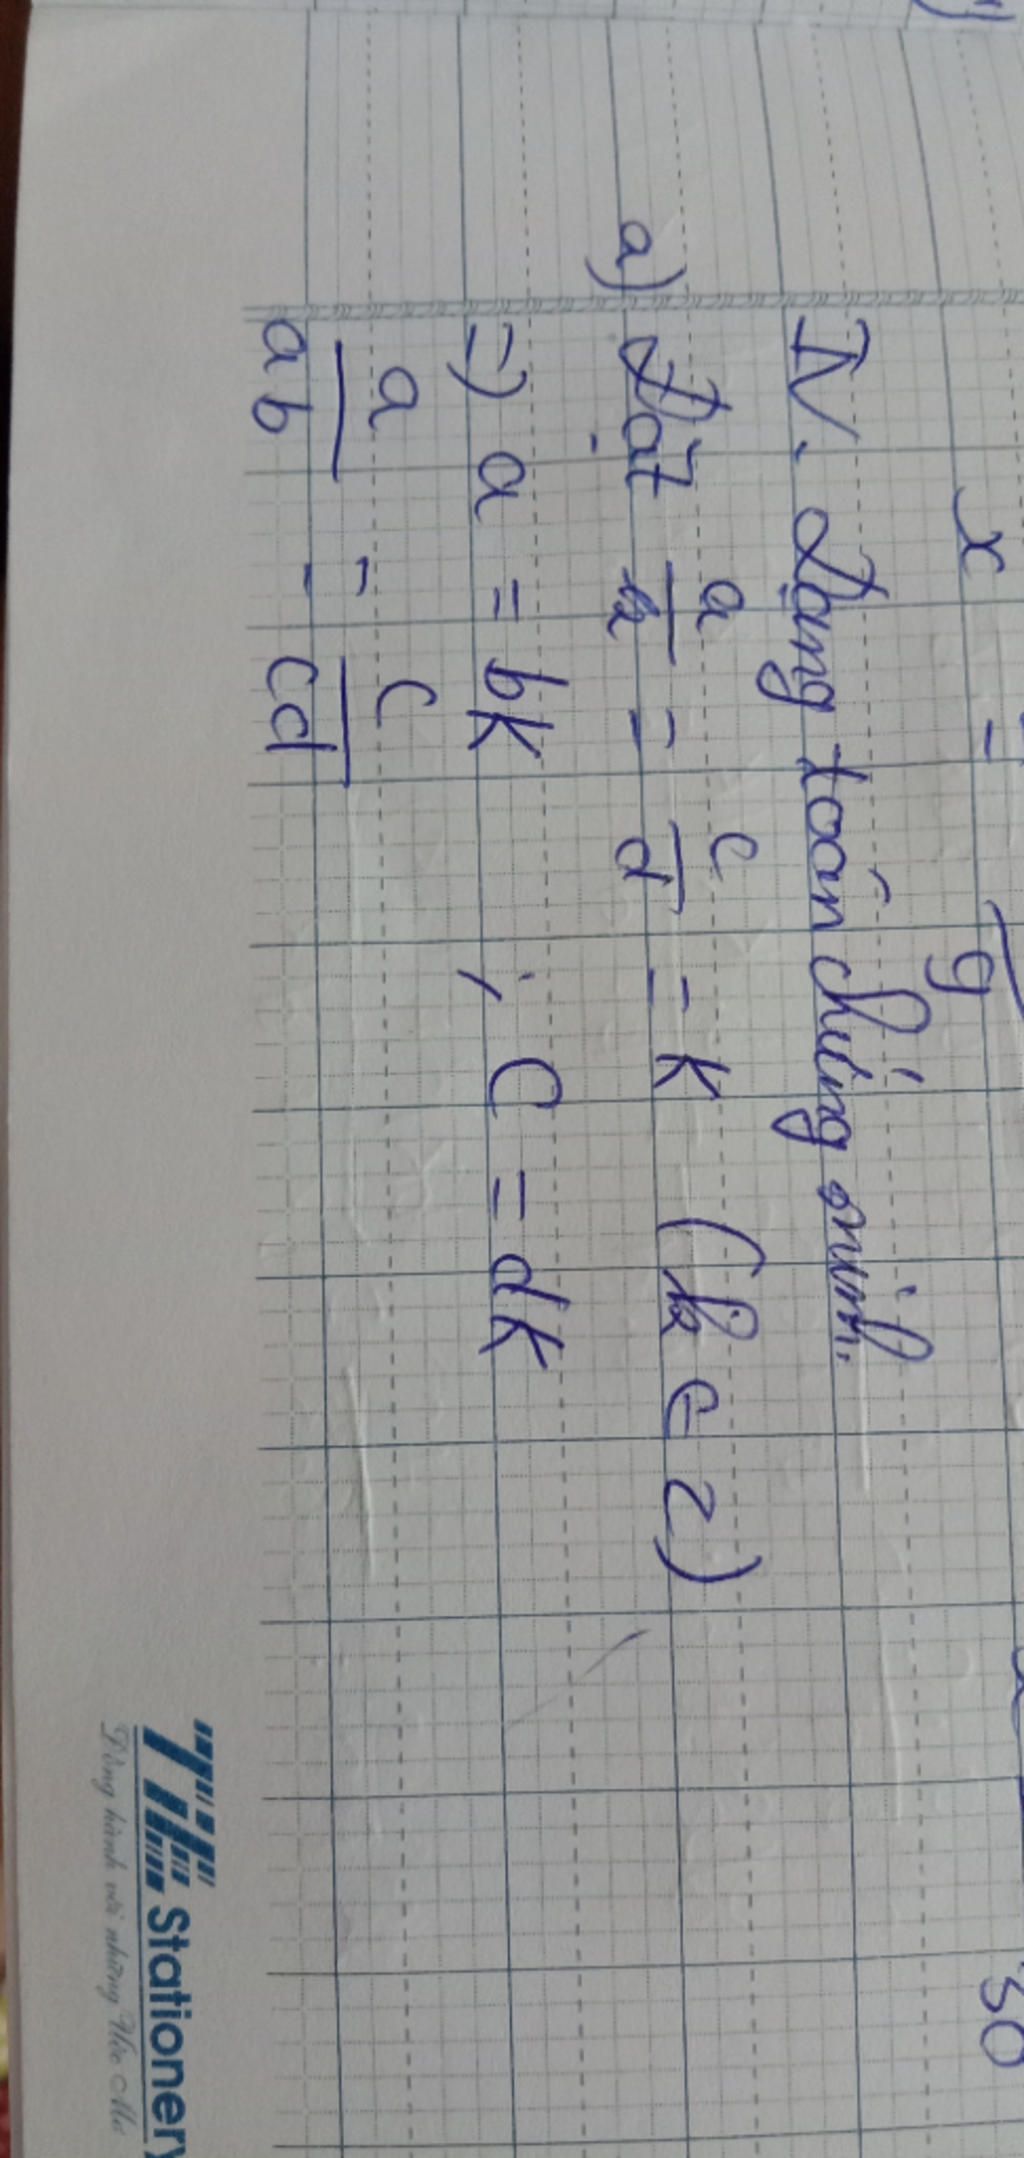 x = 9
30
IV. Dạng toán chứng minh.
a) Đặt a/b = c/d = k (k ∈ Z)
=> a = bk ; c = dk
a/ab = c/cd
TiTi Stationery
Đồng hành với những Ước Mơ